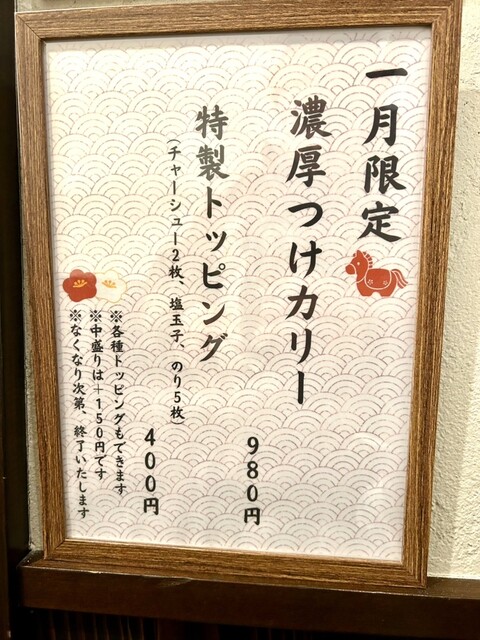 一月限定
濃厚つけカリー
980円
特製トッピング
(チャーシュー2枚、塩玉子、のり5枚)
400円
※各種トッピングもできます
※中盛りは+150円です
※なくなり次第、終了いたします